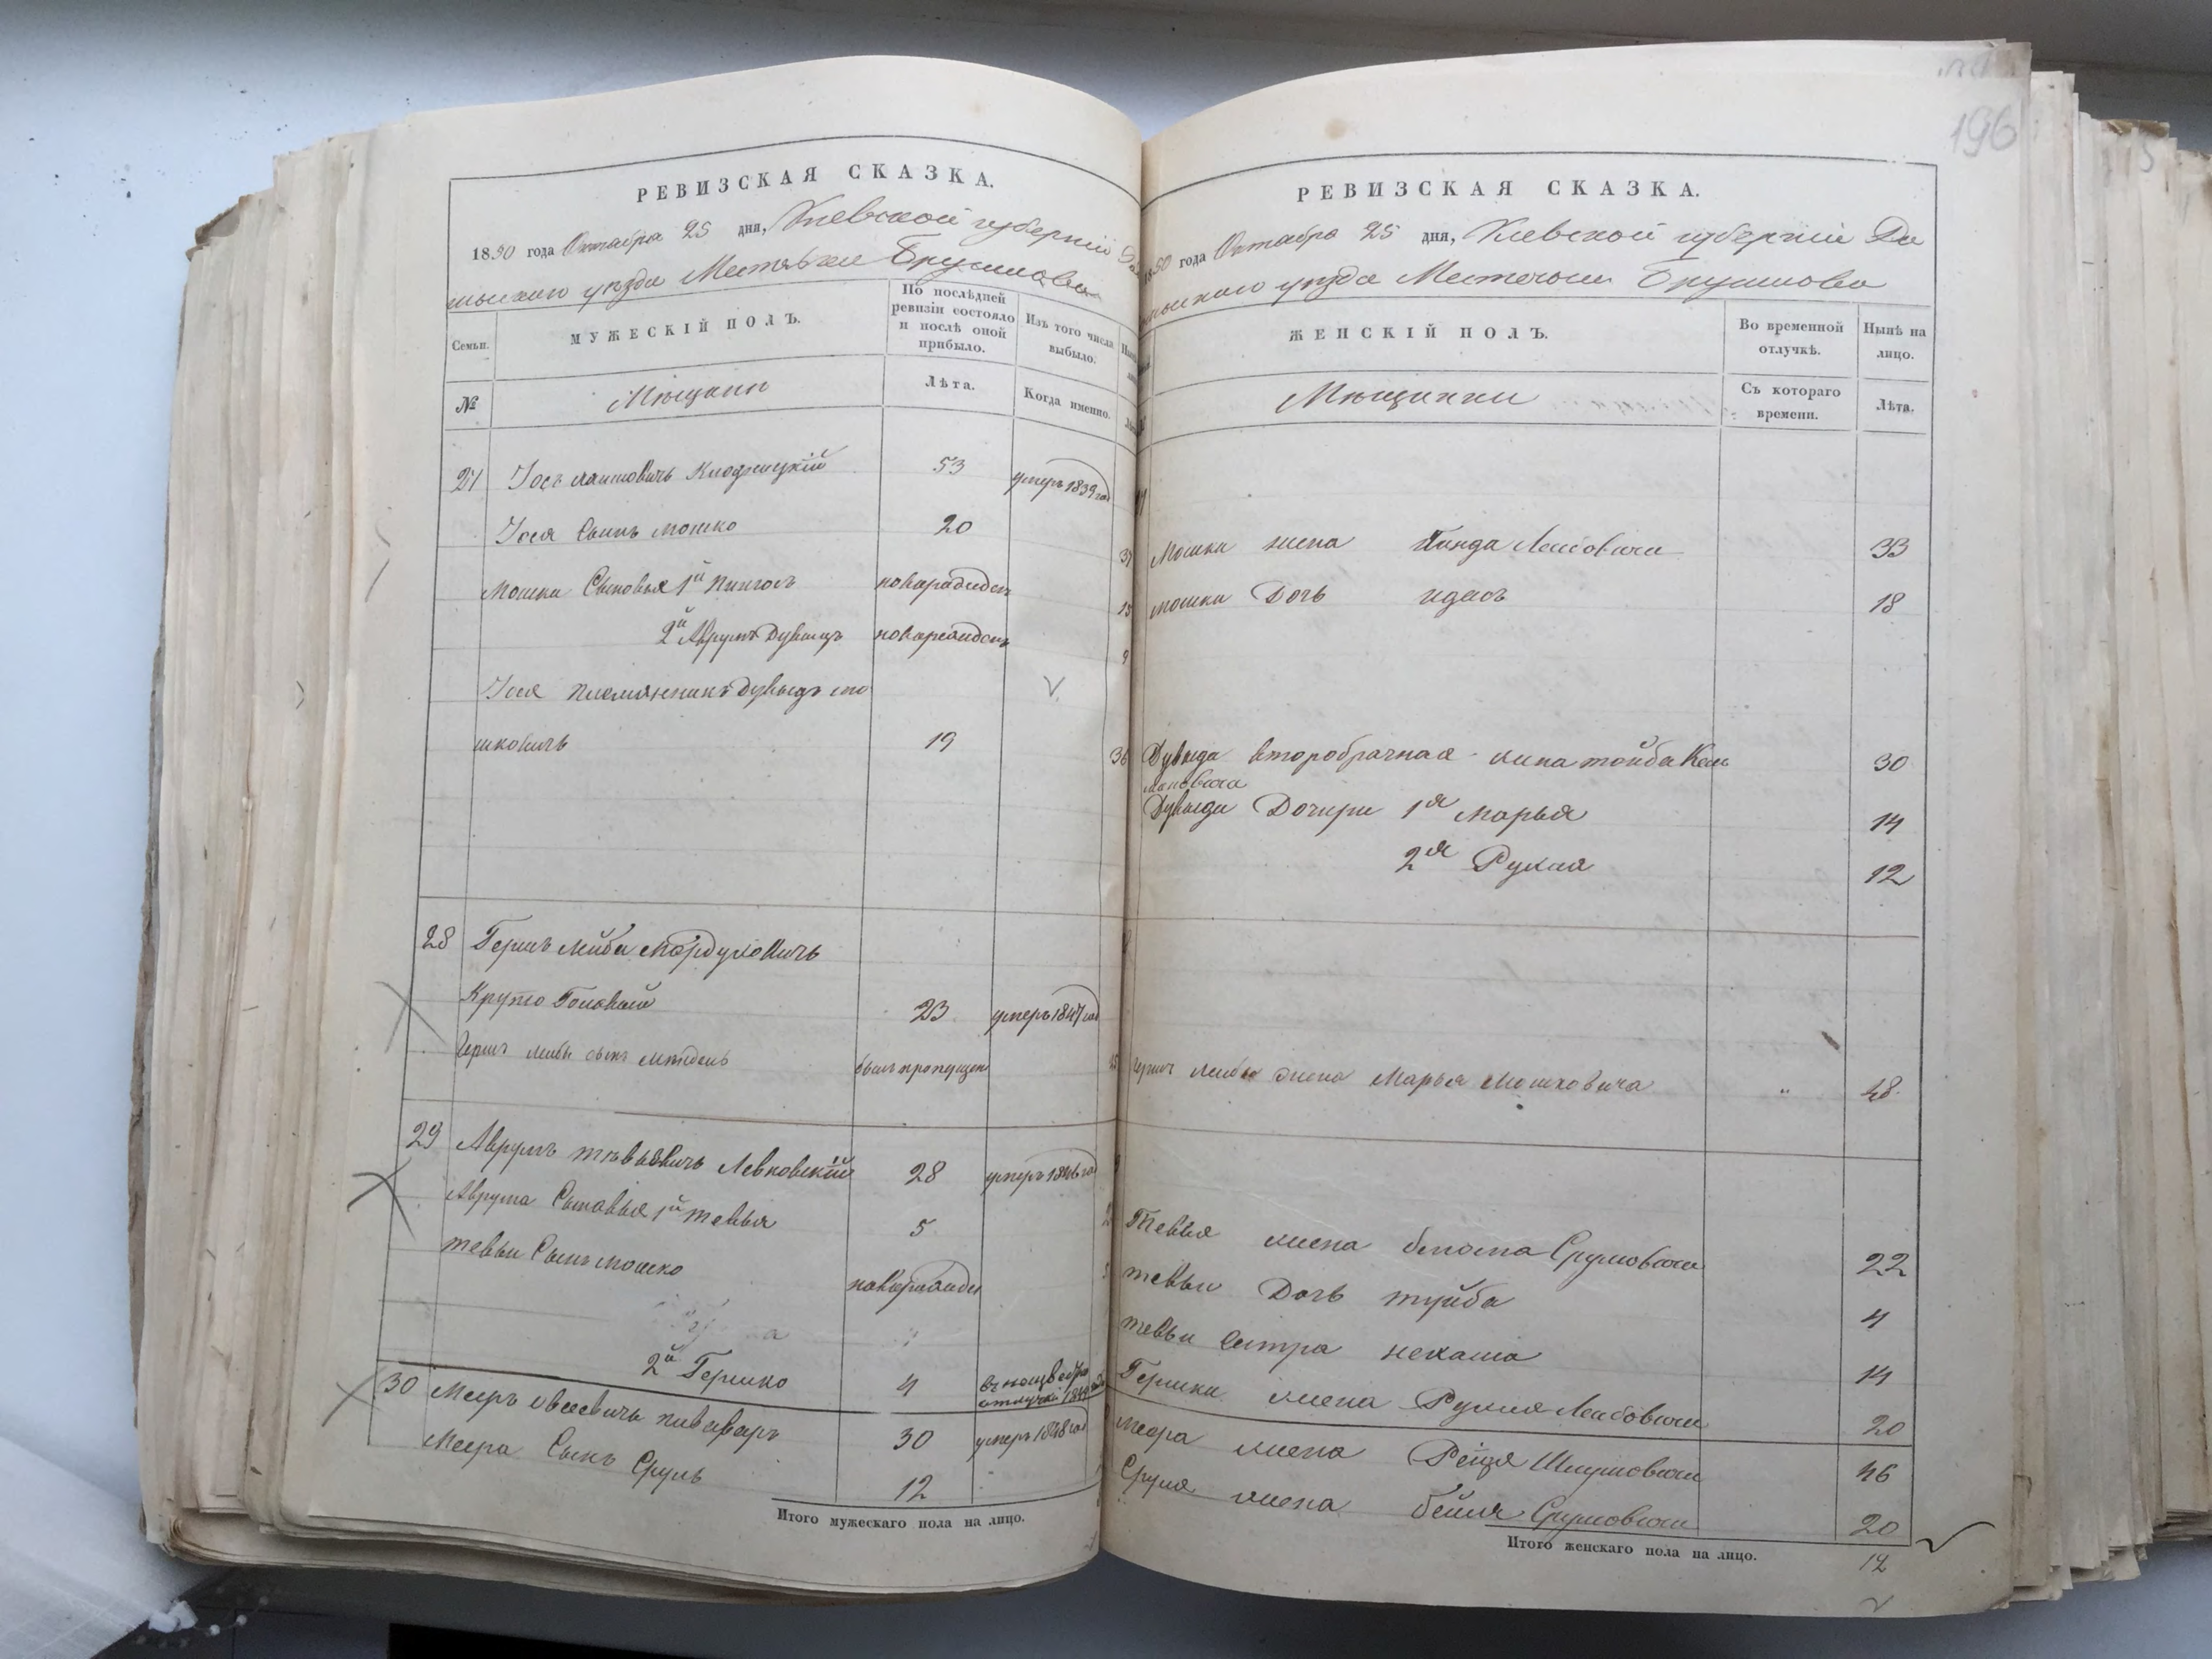 196
РЕВИЗСКАЯ СКАЗКА.
1850 года Октября 25 дня, Киевской губерніи
уѣзда Местечка Брусилова
Семьи.
МУЖЕСКІЙ ПОЛЪ.
По послѣдней ревизіи состояло и послѣ оной прибыло.
Изъ того числа выбыло.
№
Мѣщане
Лѣта.
Когда именно.
27 Іось 53 умеръ 1839 год
Іося Сынъ Мошко 20
Мошки Сыновья 1й новорожден
2й Аврумъ Дувыдъ новорожденъ
Іося племянникъ Дувыдъ мо
шковичъ 19
28 Гершъ Лейба Мордуховичъ
Круто Головый 23 умеръ 1847 год
Гершъ Лейбы сынъ былъ пропущен
29 Аврумъ Левковскій 28 умеръ 1846 го
Аврума Сыновья 1й Тевья 5
Тевьи Сынъ Мошко новорожден
2й Гершко 4 отлучкѣ 1849
30 Мееръ Овсеевичъ пивоваръ 30 умеръ 1848 год
Меера Сынъ Сруль 12
Итого мужескаго пола на лицо.
РЕВИЗСКАЯ СКАЗКА.
1850 года Октября 25 дня, Киевской губерніи Ра
уѣзда Местечка Брусилова
ЖЕНСКІЙ ПОЛЪ.
Во временной отлучкѣ.
Нынѣ на лицо.
Мѣщанки
Съ котораго времени.
Лѣта.
Мошки жена Лейбовича 33
Мошки Дочь 18
9
36 Дувыда второбрачная жена тойба Кал
мановича 30
Дувыда Дочери 1я Марья 14
2я Рухля 12
Гершъ Лейбы жена Марья Мошковича „ 48
Тевья жена Сруловича 22
Тевьи Дочь туйба 4
Тевьи Сестра нехама 14
Гершки жена Рухля Лейбовича 20
Меера жена Рейзя Шлумовича 46
Сруля жена бейля Сруловича 20
Итого женскаго пола на лицо.
12